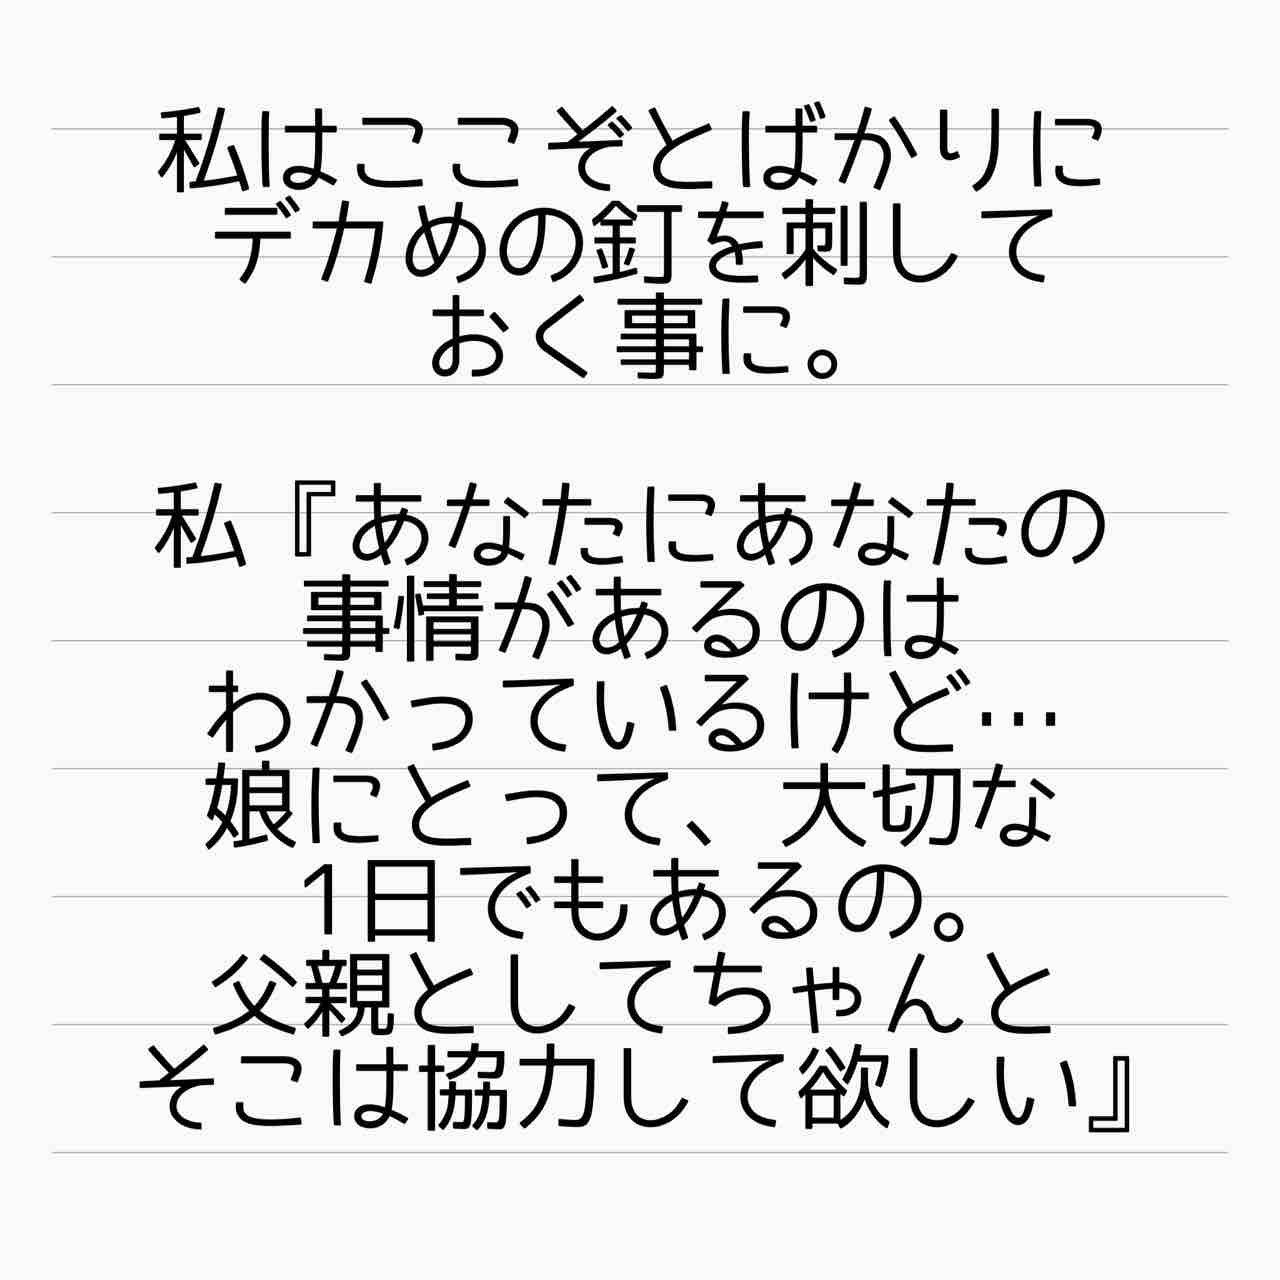 私はここぞとばかりに
デカめの釘を刺して
おく事に。
私『あなたにあなたの
事情があるのは
わかっているけど…
娘にとって、大切な
1日でもあるの。
父親としてちゃんと
そこは協力して欲しい』